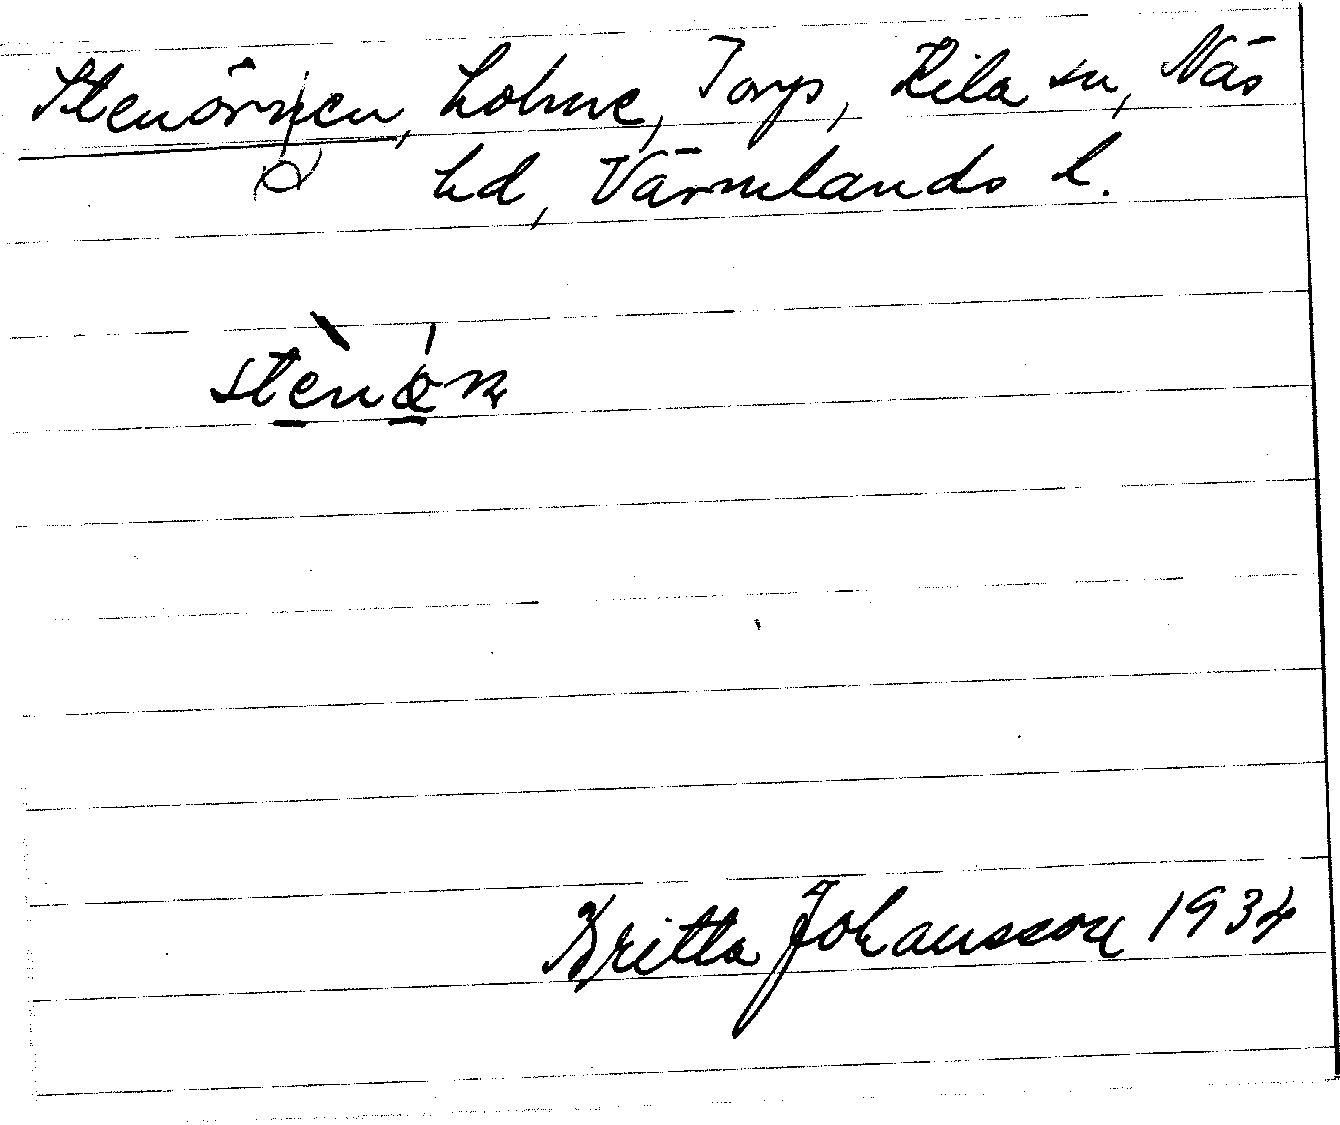 Stenörnen, Lohne, Torp, Kila sn, Näs
hd, Värmlands l.
Britta Johansson 1934